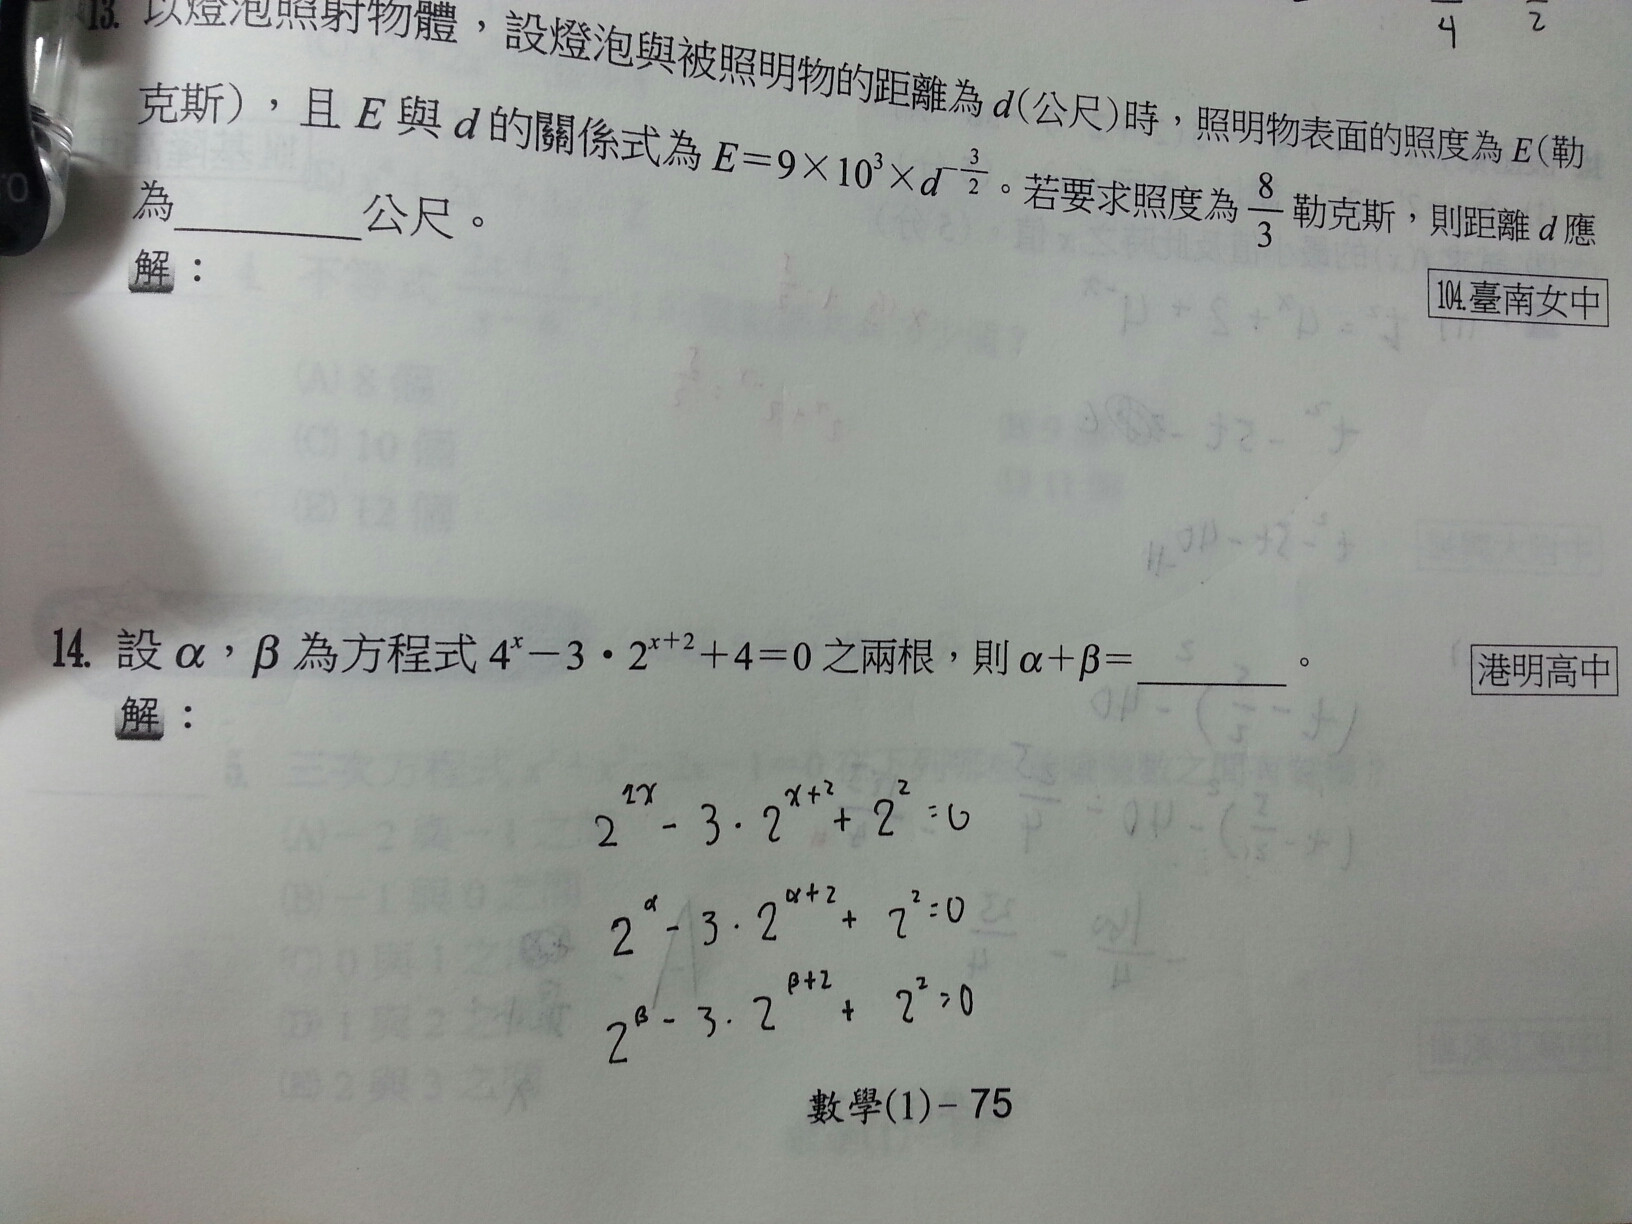 13. 以燈泡照射物體，設燈泡與被照明物的距離為 d(公尺)時，照明物表面的照度為 E(勒
克斯)，且 E 與 d 的關係式為 E=9×10³×d^{-3/2}。若要求照度為 8/3 勒克斯，則距離 d 應
為______公尺。
解：
104.臺南女中
14. 設 α，β 為方程式 4^x－3·2^{x+2}+4=0 之兩根，則 α+β=______。
港明高中
解：
2^{2x} - 3·2^{x+2} + 2^2 = 0
2^α - 3·2^{α+2} + 2^2 = 0
2^β - 3·2^{β+2} + 2^2 = 0
數學(1)－75